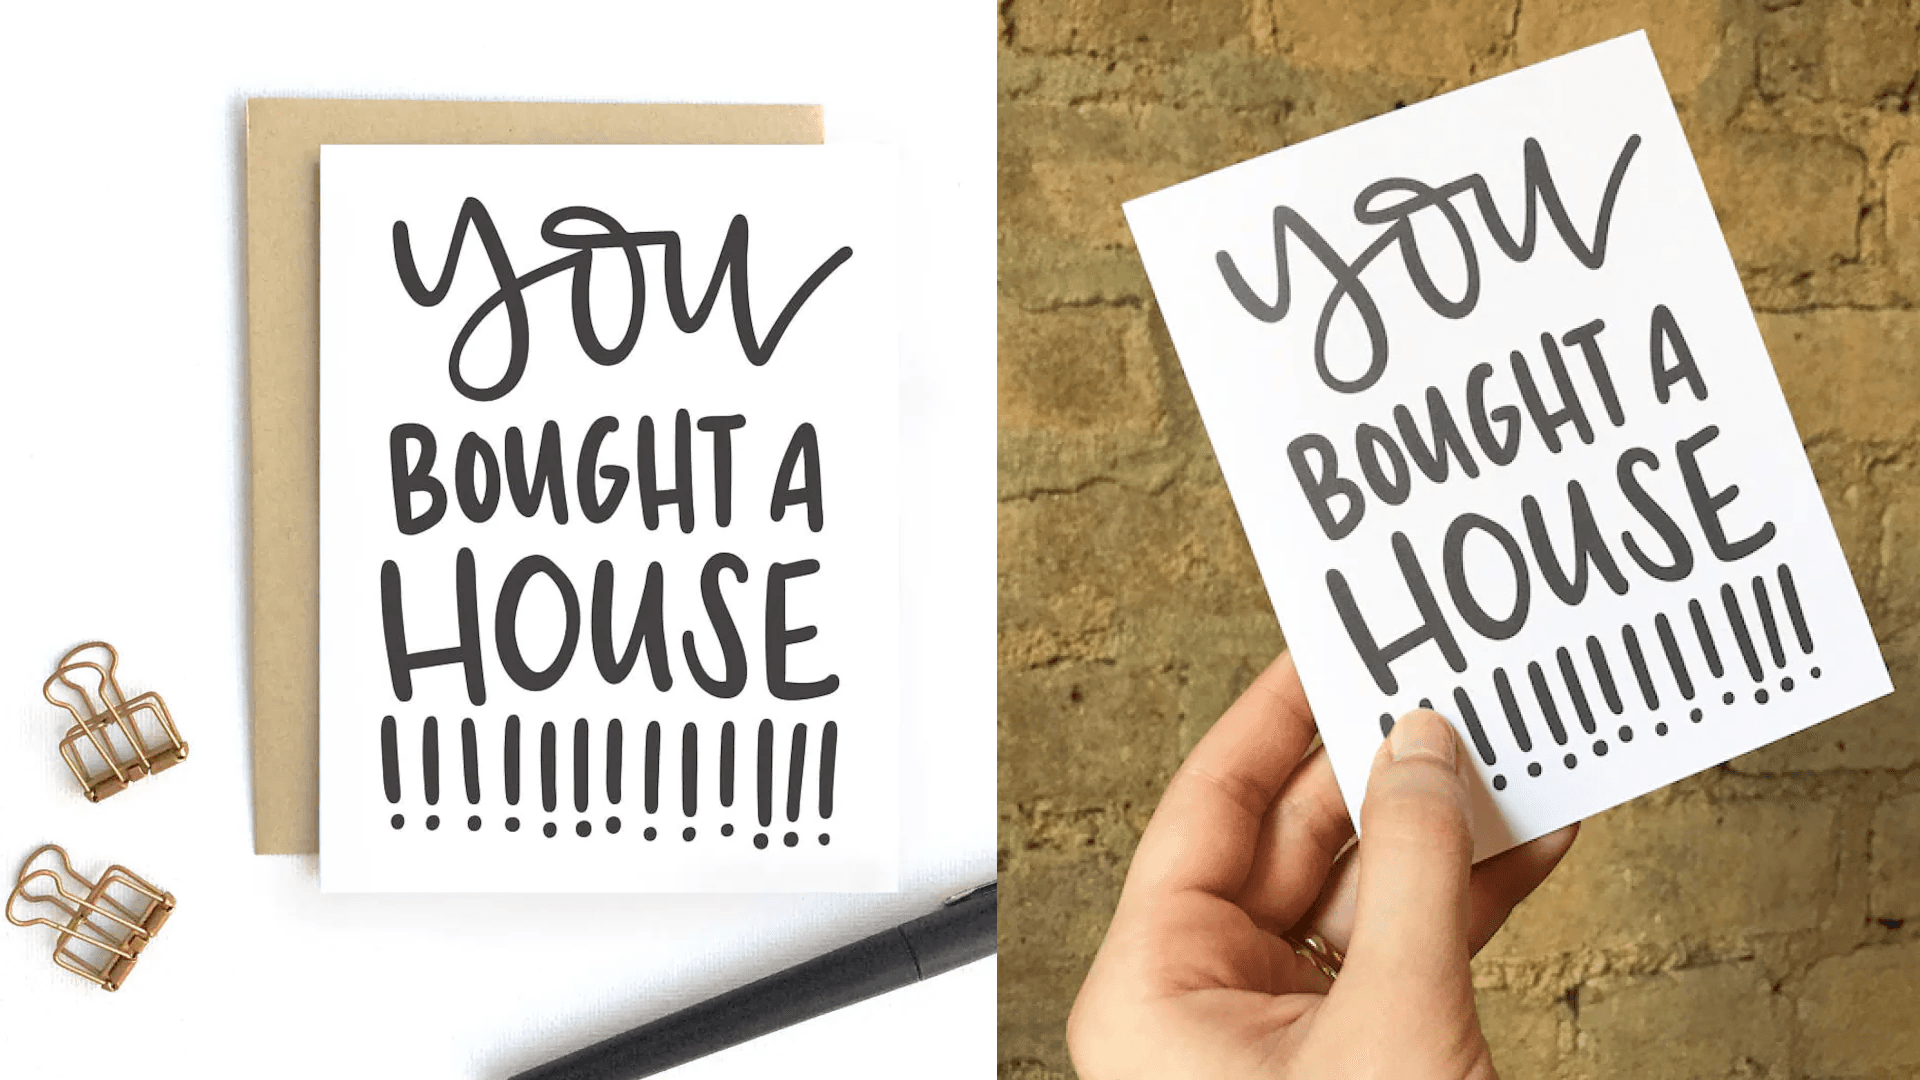 you
BOUGHT A
HOUSE
!!!!!!!!!!!!!
you
BOUGHT A
HOUSE
!!!!!!!!!!!!!